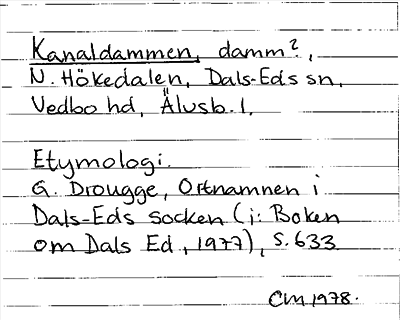 Kanaldammen, damm?,
N. Hökedalen, Dals-Eds sn,
Vedbo hd, Älvsb. l.
Etymologi.
G. Drougge, Ortnamnen i
Dals-Eds socken (i: Boken
om Dals Ed, 1977), s. 633
CM 1978.